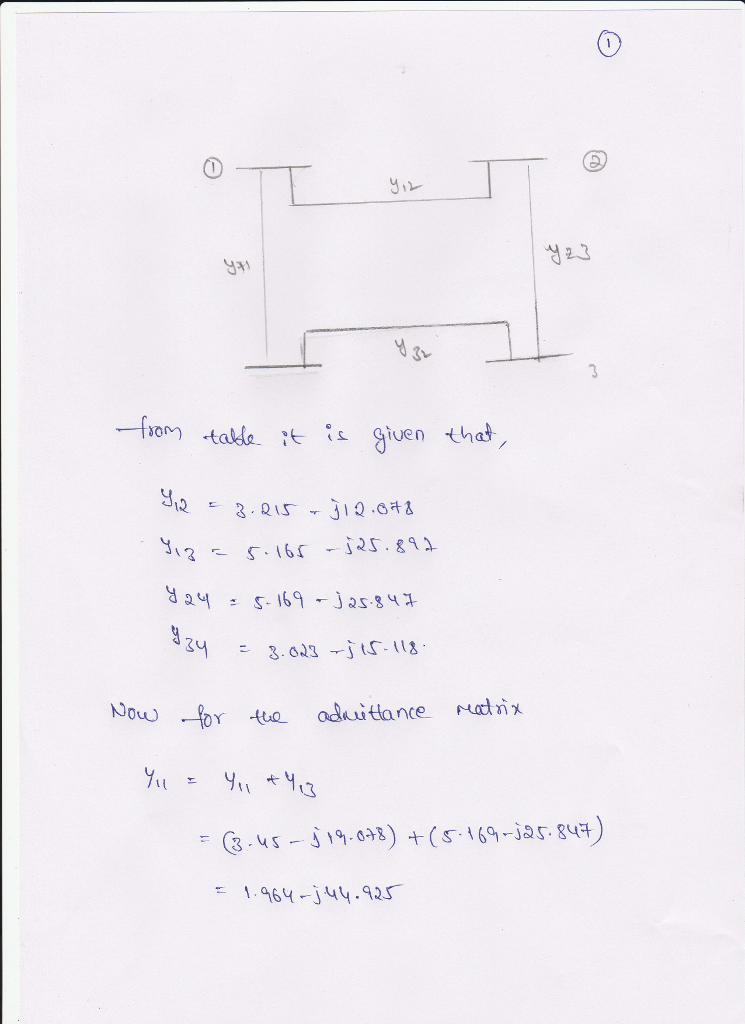 ①
① ②
y12
y71 y23
y32
3
from table it is given that,
y12 = 3.215 - j12.078
y13 = 5.165 - j25.897
y24 = 5.169 - j25.847
y34 = 3.023 - j15.118.
Now for the admittance matrix
Y11 = Y11 + Y13
= (3.45 - j19.078) + (5.169 - j25.847)
= 1.964 - j44.925